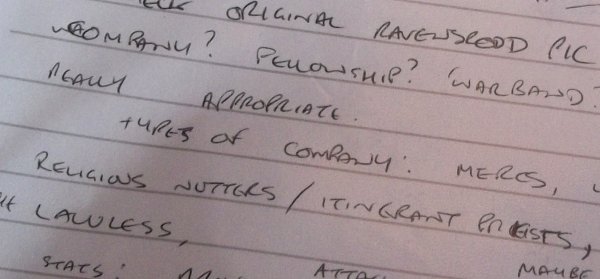 ORIGINAL RAVENSBLOOD PIC
COMPANY? FELLOWSHIP? 'WARBAND?
REALLY APPROPRIATE.
TYPES OF COMPANY: MERCS,
RELIGIOUS NUTTERS / ITINERANT PRIESTS,
LAWLESS, MAYBE
STATS: